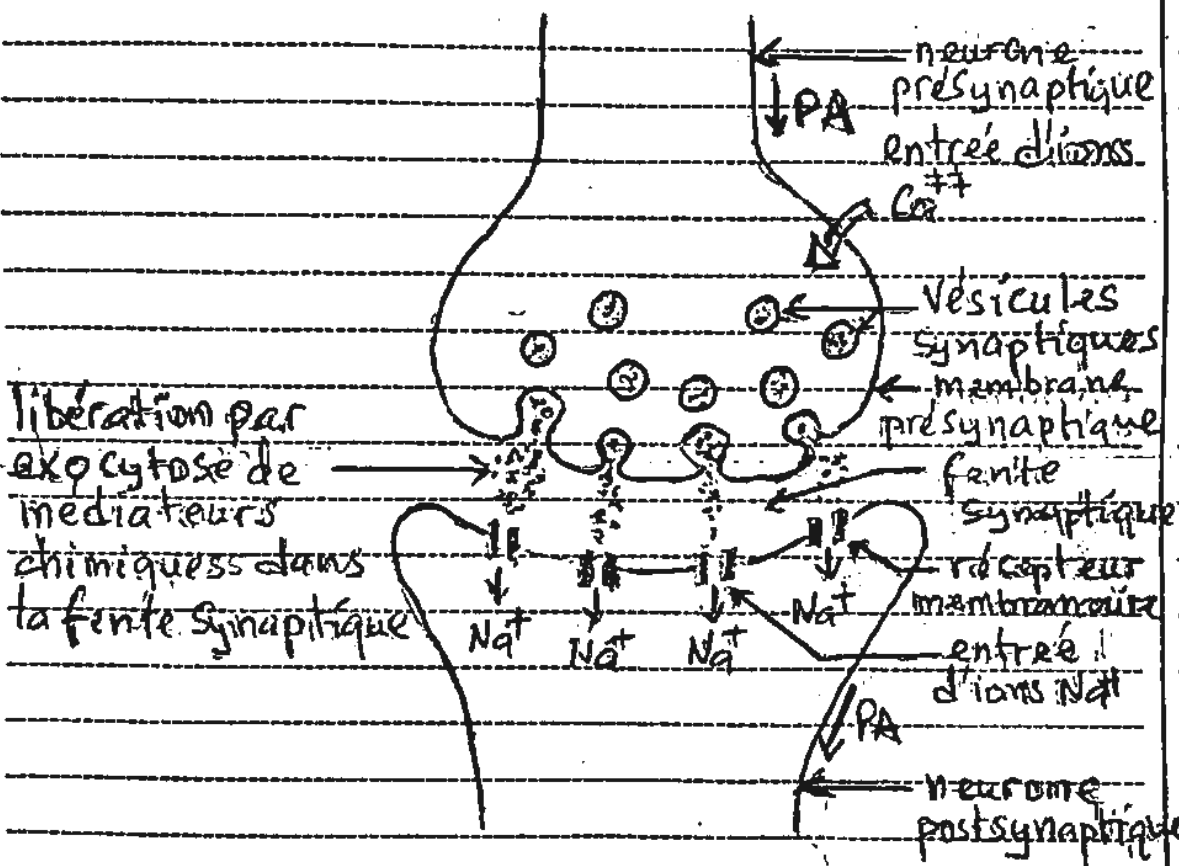 neurone
présynaptique
PA
entrée d'ions
Ca++
vésicules
synaptiques
membrane
présynaptique
libération par
exocytose de
médiateurs
chimiquess dans
la fente synaptique
fente
synaptique
récepteur
membranaire
Na+
Na+
Na+
Na+
entrée
d'ions Na+
PA
neurone
postsynaptique